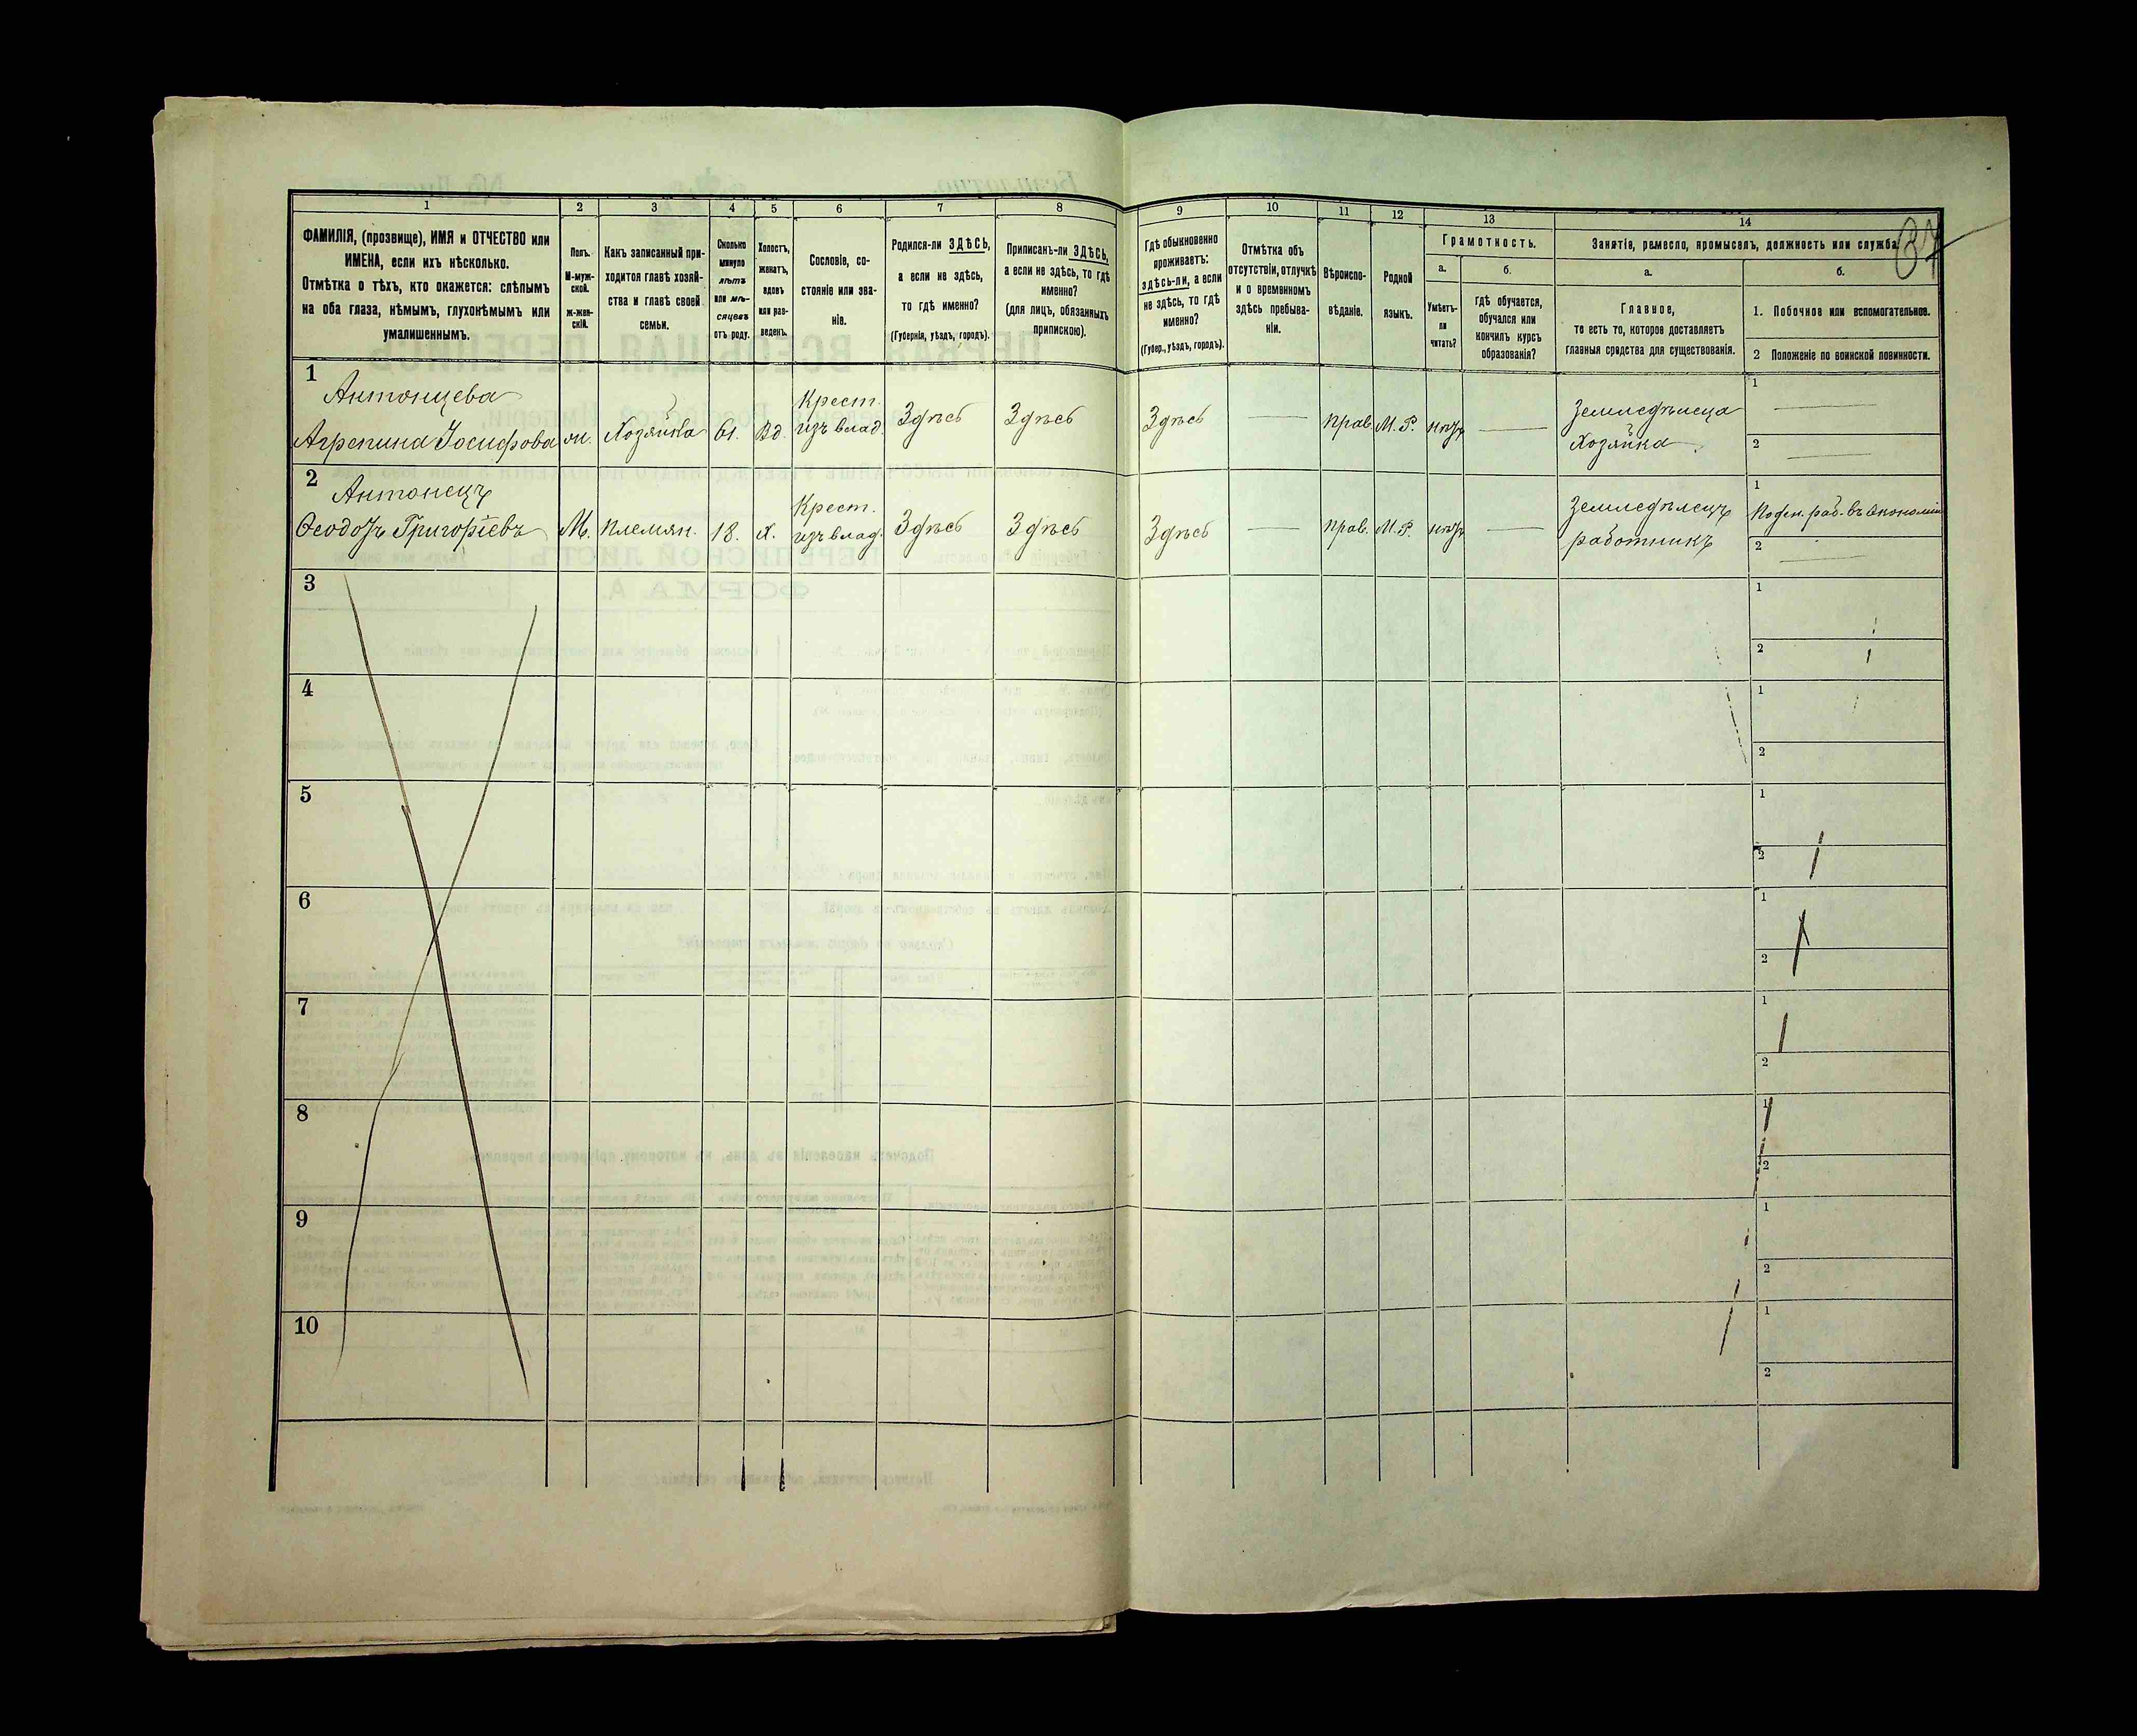 1
2
3
4
5
6
7
8
9
10
11
12
13
14
37
ФАМИЛІЯ, (прозвище), ИМЯ и ОТЧЕСТВО или
ИМЕНА, если ихъ нѣсколько.
Отмѣтка о тѣхъ, кто окажется: слѣпымъ
на оба глаза, нѣмымъ, глухонѣмымъ или
умалишеннымъ.
Полъ.
М-муж-
ской.
ж-жен-
скій.
Какъ записанный при-
ходится главѣ хозяй-
ства и главѣ своей
семьи.
Сколько
минуло
лѣтъ
или мѣ-
сяцевъ
отъ роду.
Холостъ,
женатъ,
вдовъ
или раз-
веденъ.
Сословіе, со-
стояніе или зва-
ніе.
Родился-ли ЗДѢСЬ,
а если не здѣсь,
то гдѣ именно?
(Губернія, уѣздъ, городъ).
Приписанъ-ли ЗДѢСЬ,
а если не здѣсь, то гдѣ
именно?
(для лицъ, обязанныхъ
припискою).
Гдѣ обыкновенно
проживаетъ:
здѣсь-ли, а если
не здѣсь, то гдѣ
именно?
(Губер., уѣздъ, городъ).
Отмѣтка объ
отсутствіи, отлучкѣ
и о временномъ
здѣсь пребыва-
ніи.
Вѣроиспо-
вѣданіе.
Родной
языкъ.
Грамотность.
а.
Умѣетъ-
ли
читать?
б.
Гдѣ обучается,
обучался или
кончилъ курсъ
образованія?
Занятіе, ремесло, промыселъ, должность или служба.
а.
Главное,
то есть то, которое доставляетъ
главныя средства для существованія.
б.
1. Побочное или вспомогательное.
2 Положеніе по воинской повинности.
1
Антонцева
Агрепина Іосифова
Хозяйка
61.
Вд.
Крест.
изъ влад.
Здѣсь
Здѣсь
Здѣсь
прав.
М. Р.
нѣтъ
Земледѣлеца
Хозяйка
1
2
2
Антонецъ
Ѳеодотъ Григоріевъ
М.
племян.
18.
Х.
Крест.
изъ влад.
Здѣсь
Здѣсь
Здѣсь
прав.
М. Р.
нѣтъ
Земледѣлецъ
работникъ
1
Поден. раб. въ экономіи
2
3
1
2
4
1
2
5
1
2
6
1
2
7
1
2
8
1
2
9
1
2
10
1
2